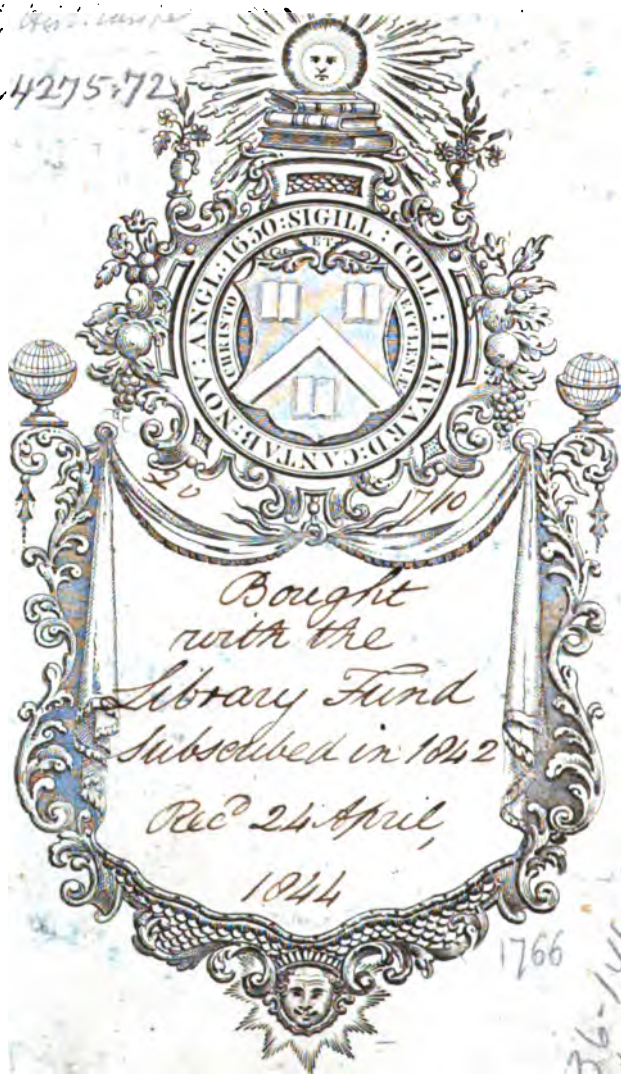 4275.72
SIGILL : COLL : HARVARD : CANTAB : NOV : ANGL : 1650 :
CHRISTO ET ECCLESIÆ
7/10
Bought
with the
Library Fund
Subscribed in 1842
Recd 24 April,
1844
1766